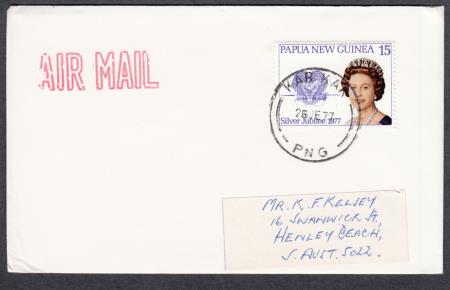 AIR MAIL
PAPUA NEW GUINEA 15
Silver Jubilee 1977
KAR KAR
26 JE 77
PNG
MR. K. F. KELSEY
16 SWANWICK ST,
HENLEY BEACH,
S. AUST. 5022.